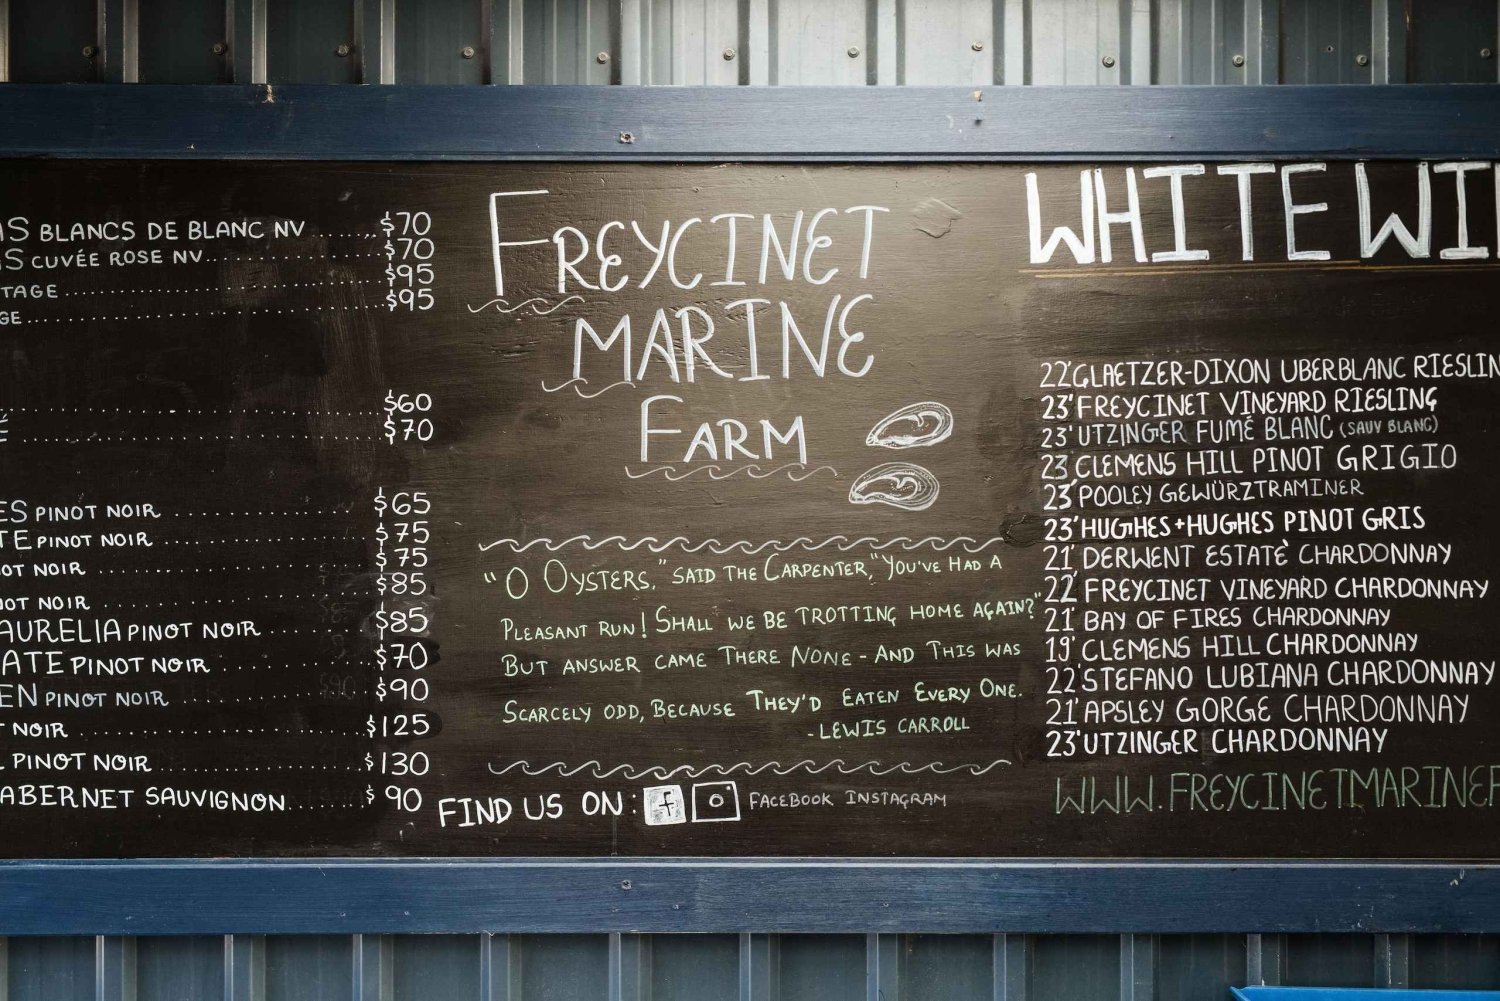 S BLANCS DE BLANC NV ....... $70
S CUVÉE ROSE NV .............. $70
TAGE .............. $95
GE .............. $95
.............. $60
É .............. $70
ES PINOT NOIR .............. $65
TE PINOT NOIR .............. $75
OT NOIR .............. $75
OT NOIR .............. $85
AURELIA PINOT NOIR .............. $85
ATE PINOT NOIR .............. $70
EN PINOT NOIR .............. $90
T NOIR .............. $125
PINOT NOIR .............. $130
ABERNET SAUVIGNON ....... $90
FREYCINET
MARINE
FARM
"O OYSTERS," SAID THE CARPENTER, "YOU'VE HAD A
PLEASANT RUN! SHALL WE BE TROTTING HOME AGAIN?"
BUT ANSWER CAME THERE NONE - AND THIS WAS
SCARCELY ODD, BECAUSE THEY'D EATEN EVERY ONE.
- LEWIS CARROLL
FIND US ON: f FACEBOOK INSTAGRAM
WHITE WI
22' GLAETZER-DIXON UBERBLANC RIESLIN
23' FREYCINET VINEYARD RIESLING
23' UTZINGER FUMÉ BLANC (SAUV BLANC)
23 CLEMENS HILL PINOT GRIGIO
23' POOLEY GEWÜRZTRAMINER
23' HUGHES + HUGHES PINOT GRIS
21' DERWENT ESTATE CHARDONNAY
22' FREYCINET VINEYARD CHARDONNAY
21' BAY OF FIRES CHARDONNAY
19' CLEMENS HILL CHARDONNAY
22' STEFANO LUBIANA CHARDONNAY
21' APSLEY GORGE CHARDONNAY
23' UTZINGER CHARDONNAY
WWW.FREYCINETMARINEF